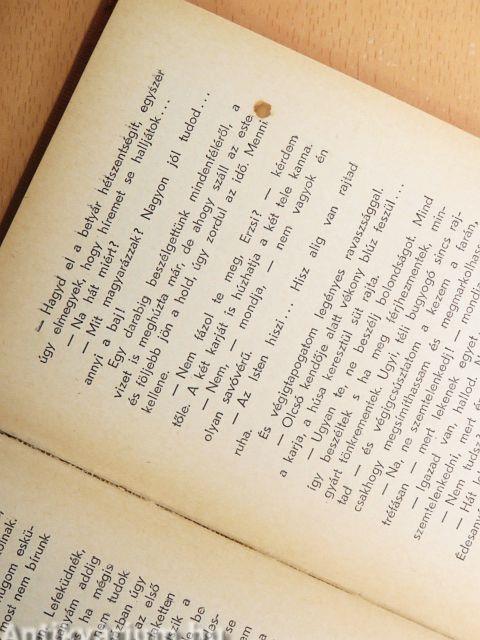 — Hagyd el a betyár hétszentségit, egyszer
úgy elmegyek, hogy híremet se halljátok . . .
— Na hát miért?
— Mit magyarázzak? Nagyon jól tudod . . .
annyi a baj!
Egy darabig beszélgettünk mindenféléről, a
vizet is meghúzta már, de ahogy száll az este
és följebb jön a hold, úgy zordul az idő. Menni
kellene.
— Nem fázol te meg, Erzsi? — kérdem
tőle. A két karját is huzhatja a két tele kanna.
— Nem, — mondja, — nem vagyok én
olyan savóvérű.
— Az Isten hiszi... Hisz alig van rajtad
ruha.
És végigtapogatom legényes ravaszsággal.
— Olcsó kendője alatt vékony blúz feszül . . .
a karja, a húsa keresztül süt rajta.
— Ugyan te, ne beszélj bolondságot. Mind
így beszéltek s ha meg férjhezmentek, min-
gyárt tönkrementek. Ugyi, téli bugyogó sincs raj-
tad — és végigcsúsztatom a kezem a farán,
csakhogy megsimíthassam és megmarkolhass
— Na, ne szemtelenkedj! — mondja
tréfásan — mert lekenek egyet
— Igazad van, hallod. N
szemtelenkedni, mert én
— Nem tudsz?
— Hát
Édesany
olnak.
hugom eskü-
most nem bírunk
Lefeküdnék,
várám addig
ha mégis
nem tudok
házban úgy
az első
zik a
be
Antikvarium.hu